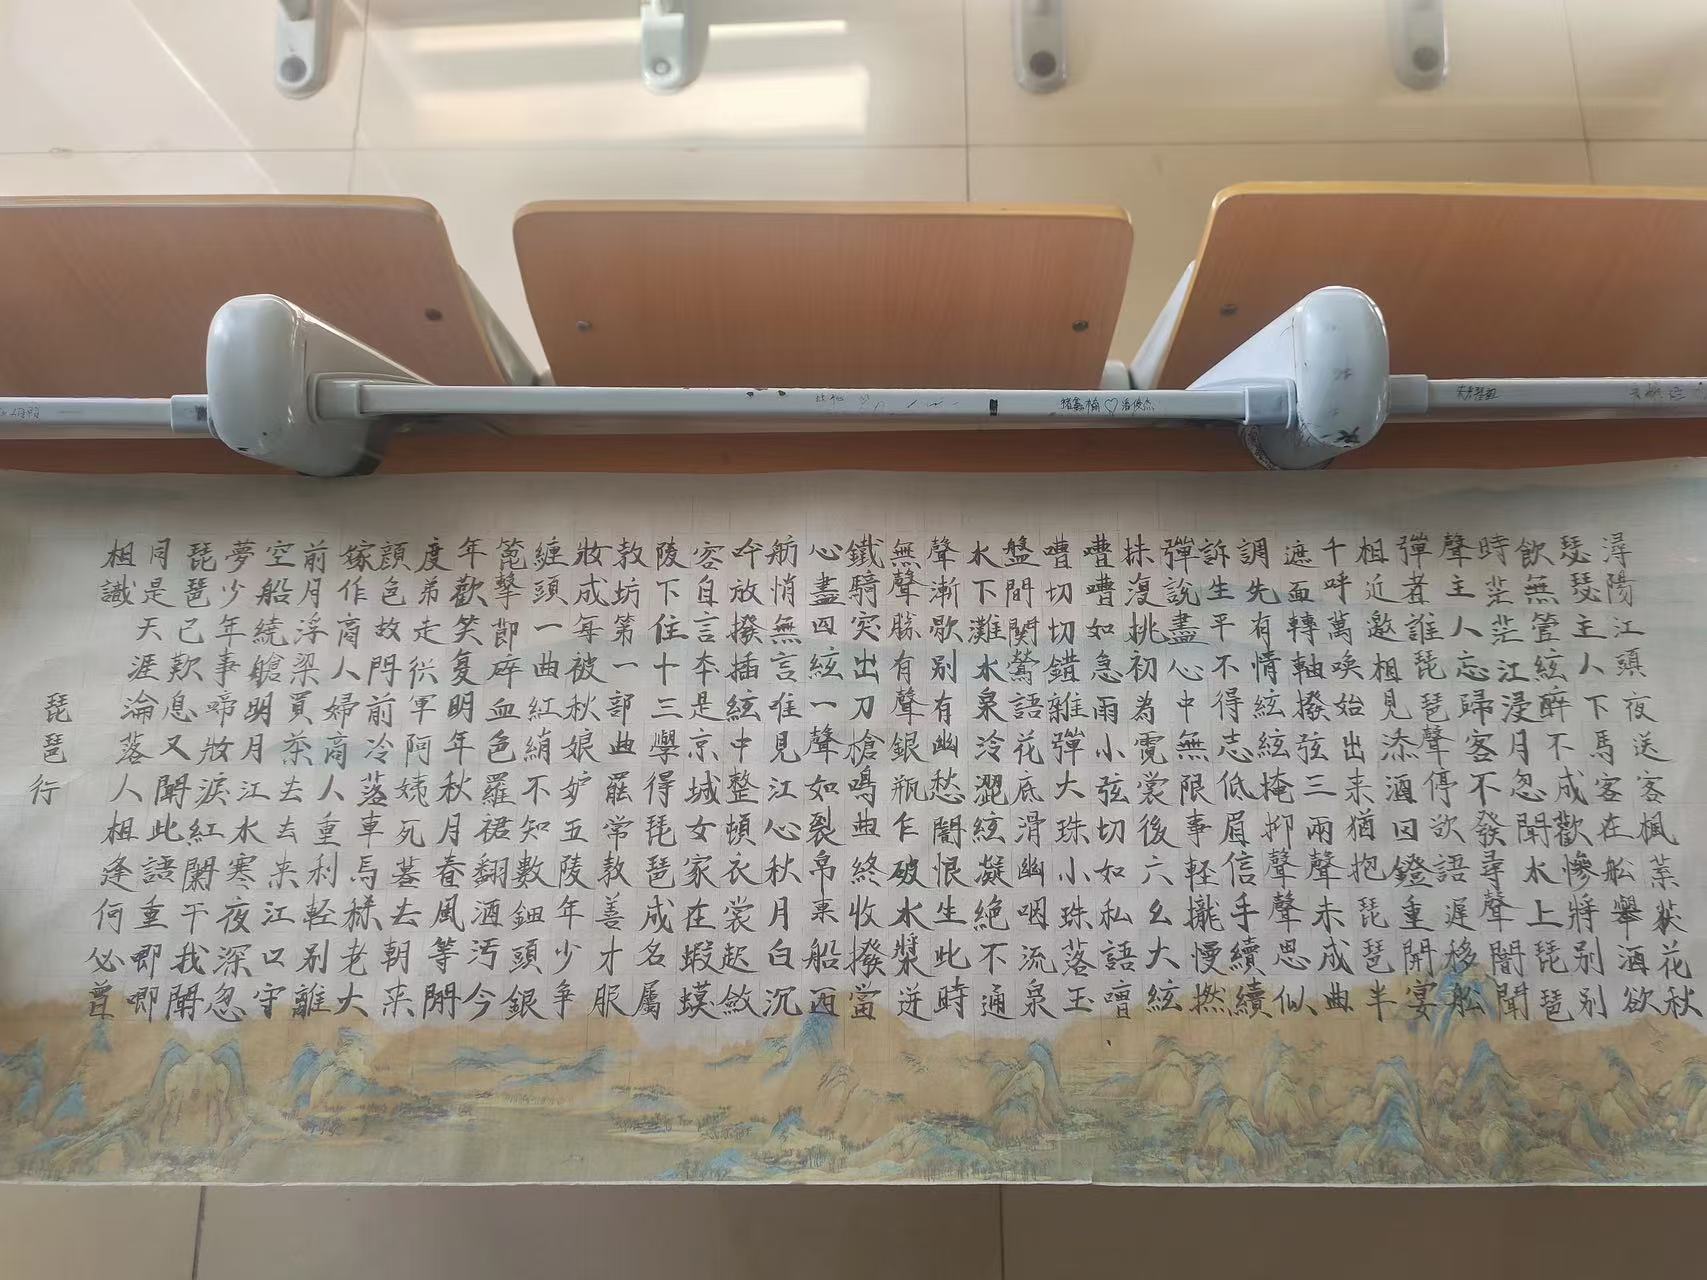 潯陽江頭夜送客楓葉荻花秋
瑟瑟主人下馬客在舩舉酒欲
飲無管絃醉不成歡慘將別別
時茫茫江浸月忽聞水上琵琶
聲主人忘歸客不發尋聲闇聞
彈者誰琵琶聲停欲語遲移舩
相近邀相見添酒回鐙重開宴
千呼萬喚始出来猶抱琵琶半
遮面轉軸撥弦三兩聲未成曲
調先有情絃絃掩抑聲聲思似
訴生平不得志低眉信手續續
彈說盡心中無限事輕攏慢撚
抹復挑初為霓裳後六幺大絃
嘈嘈如急雨小弦切如私語嘈
嘈切切錯雜彈大珠小珠落玉
盤間關鶯語花底滑幽咽流泉
水下灘水泉泠澀絃凝絕不通
聲漸歇別有幽愁闇恨生此時
無聲勝有聲銀瓶乍破水漿迸
鐵騎突出刀槍鳴曲終收撥當
心盡四絃一聲如裂帛東船西
舫悄無言唯見江心秋月白沉
吟放撥插絃中整頓衣裳起斂
容自言本是京城女家在蝦蟆
陵下住十三學得琵琶成名屬
教坊第一部曲罷常教善才服
妝成每被秋娘妒五陵年少爭
纏頭一曲紅綃不知數鈿頭銀
篦擊節碎血色羅裙翻酒汚今
年歡笑复明年秋月春風等閒
度弟走從軍阿姨死暮去朝来
顔色故門前冷落車馬稀老大
嫁作商人婦商人重利輕別離
前月浮梁買茶去去来江口守
空船繞艙明月江水寒夜深忽
夢少年事啼妝淚紅闌干我聞
琵琶已歎息又聞此語重唧唧
同是天涯淪落人相逢何必曾
相識
琵琶行